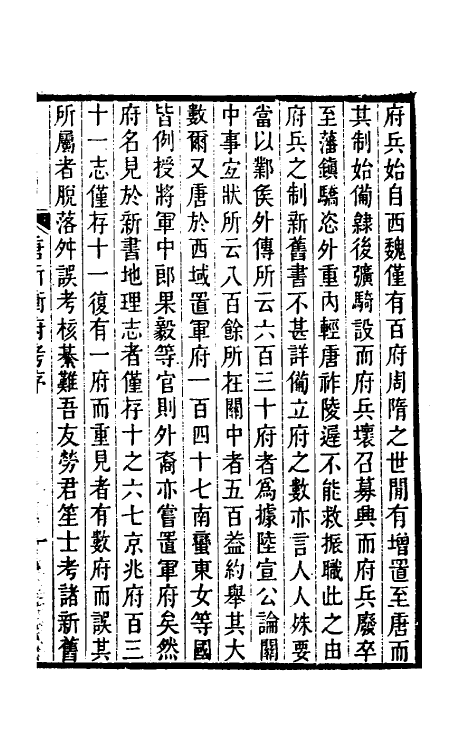 府兵始自西魏僅有百府周隋之世閒有增置至唐而
其制始備隸後彍騎設而府兵壞召募興而府兵廢卒
至藩鎮驕恣外重內輕唐祚陵遲不能救振職此之由
府兵之制新舊書不甚詳備立府之數亦言人人殊要
當以鄴侯外傳所云六百三十府者爲據陸宣公論關
中事宜狀所云八百餘所在關中者五百葢約舉其大
數爾又唐於西域置軍府一百四十七南蠻東女等國
皆例授將軍中郎果毅等官則外裔亦嘗置軍府矣然
府名見於新書地理志者僅存十之六七京兆府百三
十一志僅存十一復有一府而重見者有數府而誤其
所屬者脫落舛誤考核綦難吾友勞君笙士考諸新舊
唐折衝府考序
一